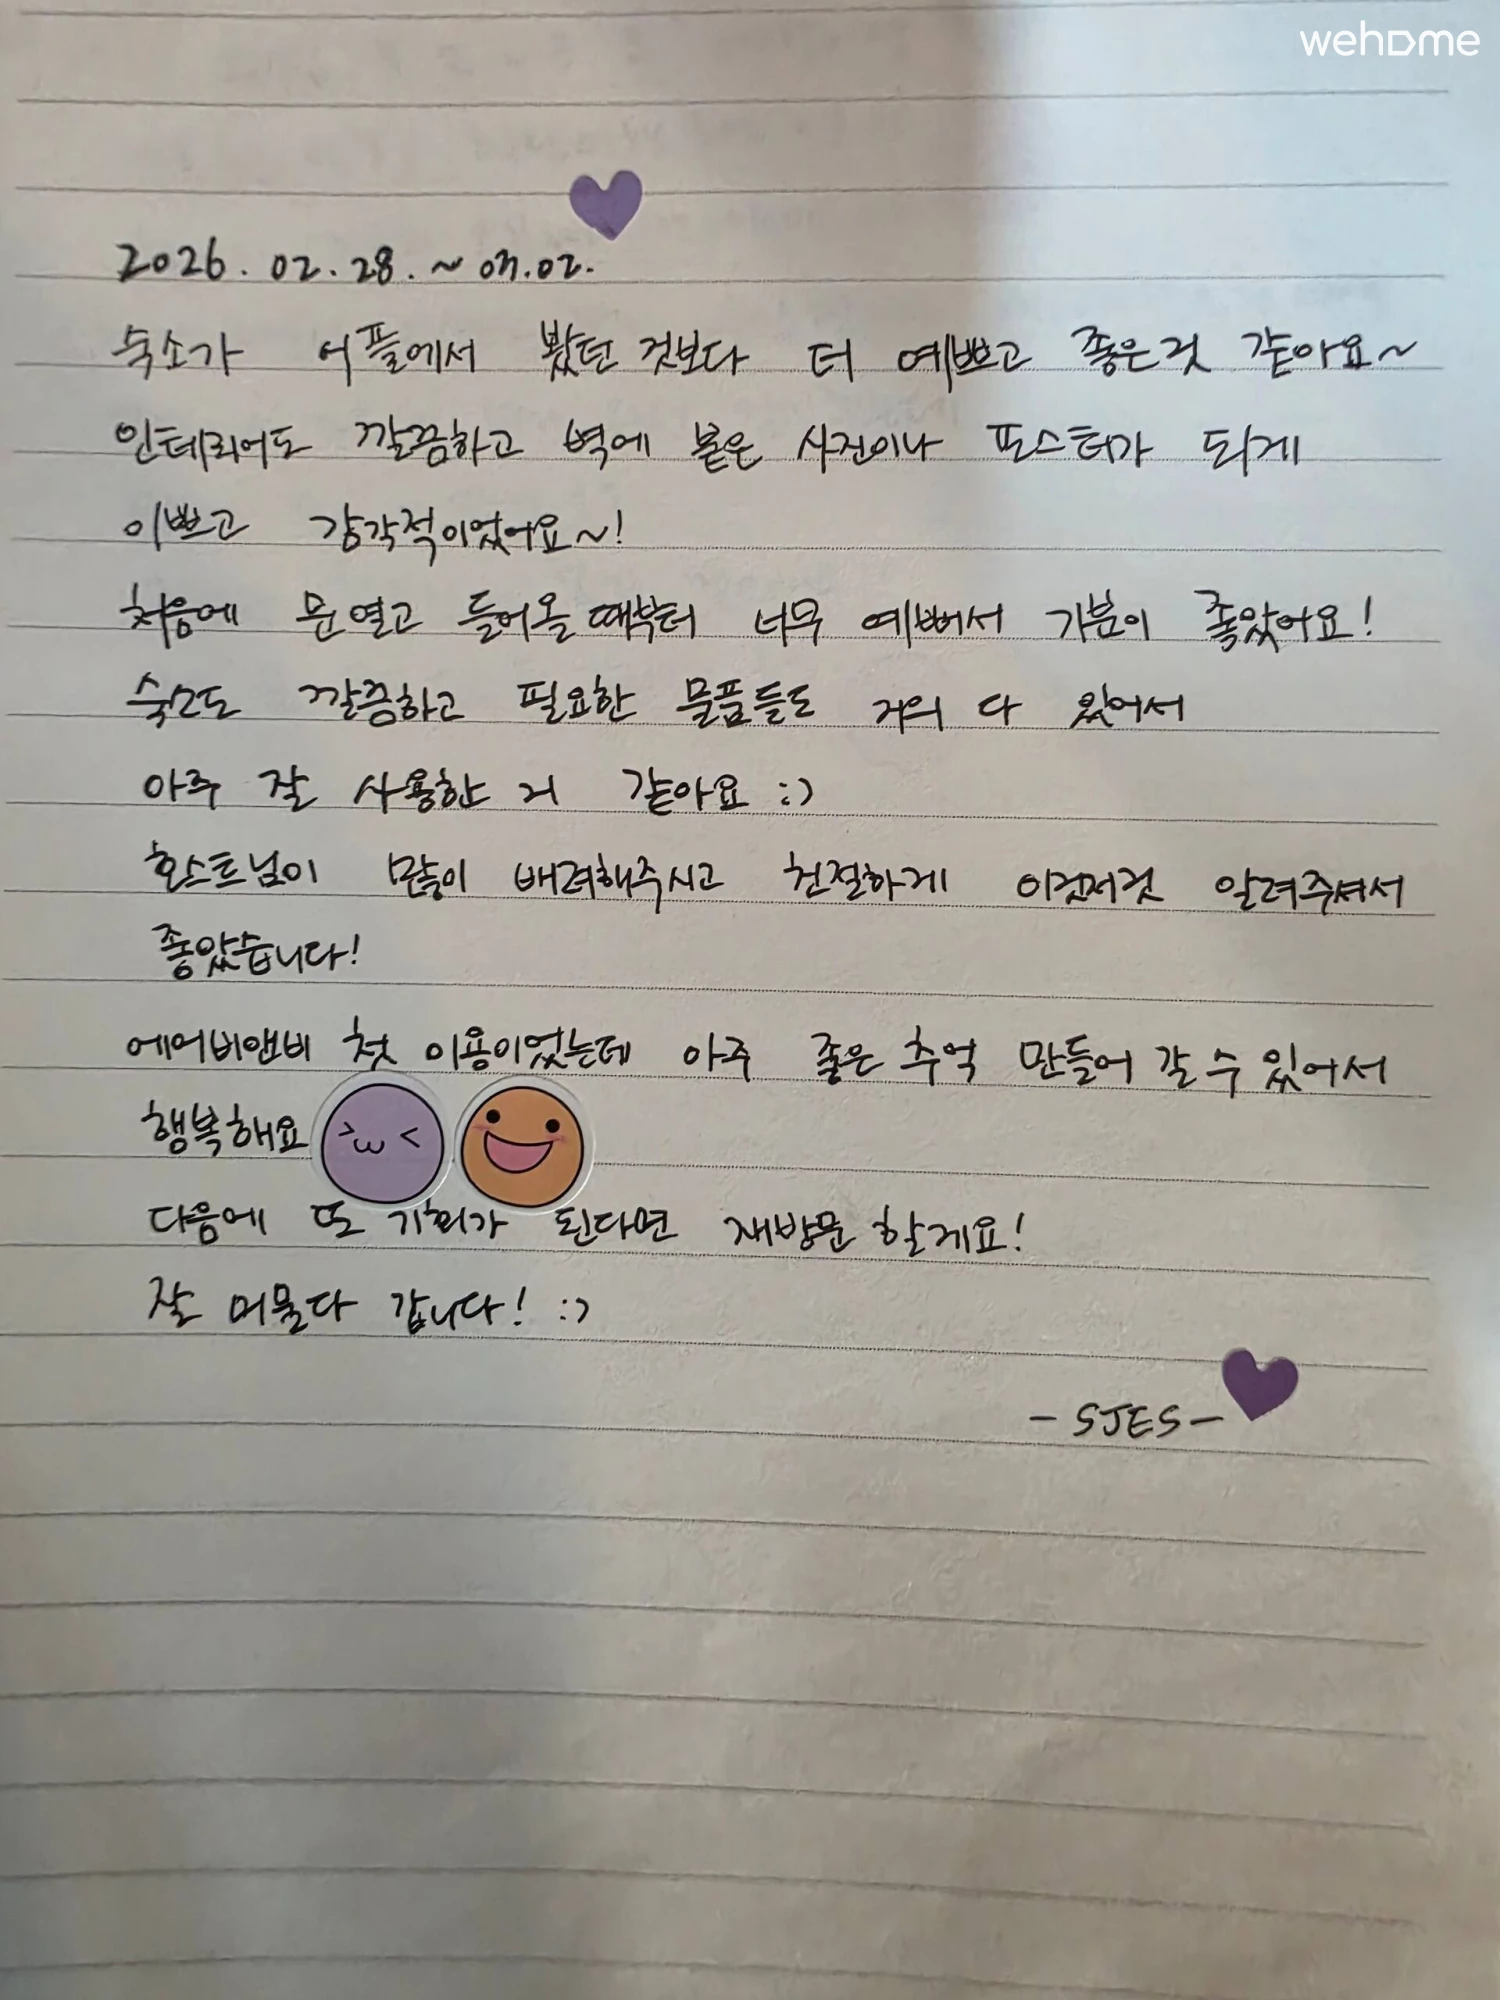 wehome
2026. 02. 28. ~ 03. 02.
숙소가 어플에서 봤던 것보다 더 예쁘고 좋은것 같아요~
인테리어도 깔끔하고 벽에 붙은 사진이나 포스터가 되게
이쁘고 감각적이었어요~!
처음에 문 열고 들어올 때부터 너무 예뻐서 기분이 좋았어요!
숙소도 깔끔하고 필요한 물품들도 거의 다 있어서
아주 잘 사용한 거 같아요 :)
호스트님이 많이 배려해주시고 친절하게 이것저것 알려주셔서
좋았습니다!
에어비앤비 첫 이용이었는데 아주 좋은 추억 만들어 갈 수 있어서
행복해요
다음에 또 기회가 된다면 재방문 할게요!
잘 머물다 갑니다! :)
- SJES -